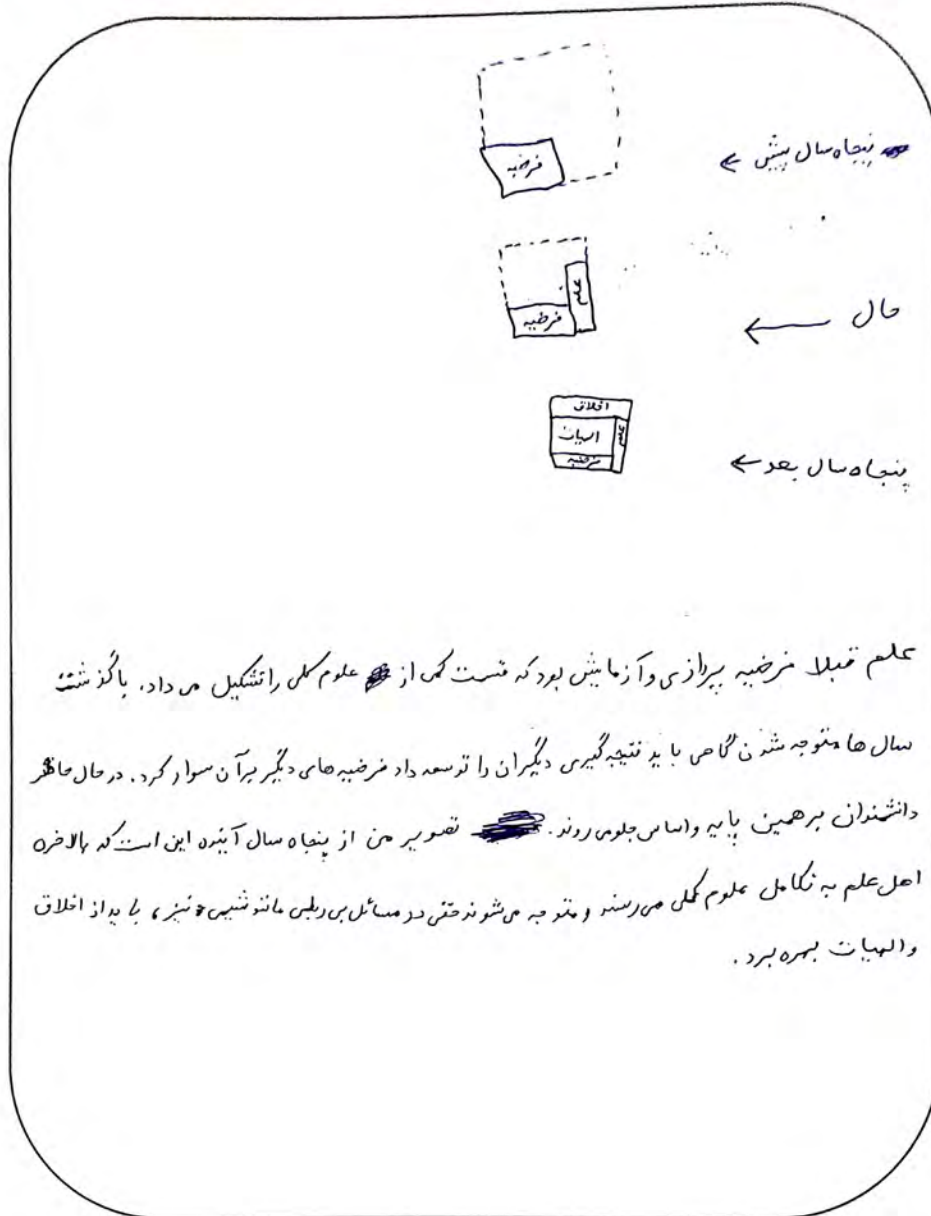 پنجاه سال پیش ←
فرضیه
حال ←
علم
فرضیه
پنجاه سال بعد ←
اخلاق
الهیات
علم
فرضیه
علم قبلا فرضیه پردازی و آزمایش بود که قسمت کمی از علوم کلی را تشکیل می داد. با گذشت
سال ها متوجه شدن گاهی باید نتیجه گیری دیگران را توسعه داد فرضیه های دیگر بر آن سوار کرد. در حال حاظر
دانشندان بر همین پایه و اساس جلو می روند. تصویر من از پنجاه سال آینده این است که بالاخره
اهل علم به تکامل علوم کلی می رسند و متوجه می شوند حتی در مسائل بی ربطی مانند شیمی نیز، باید از اخلاق
و الهیات بهره برد.